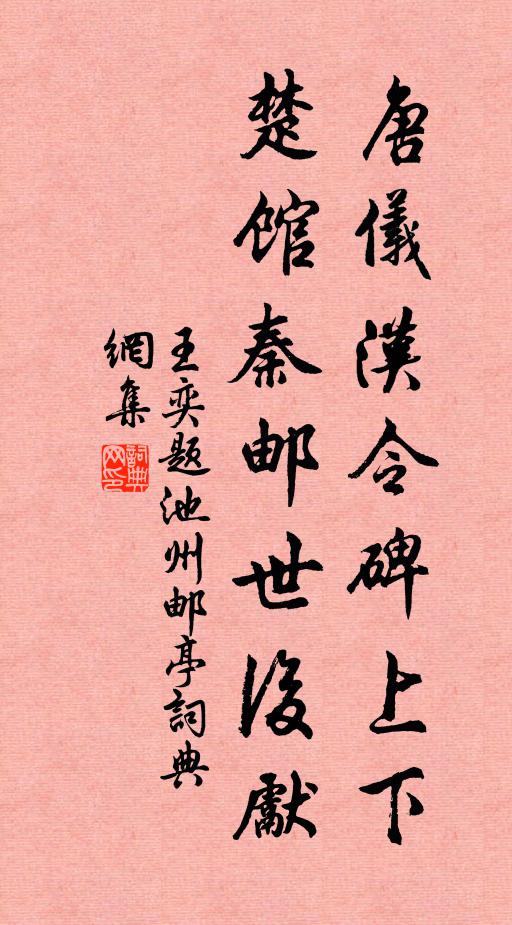 唐儀漢令碑上下
楚館秦邮世後獻
王奕题池州邮亭詞典
網集
詞典
网印